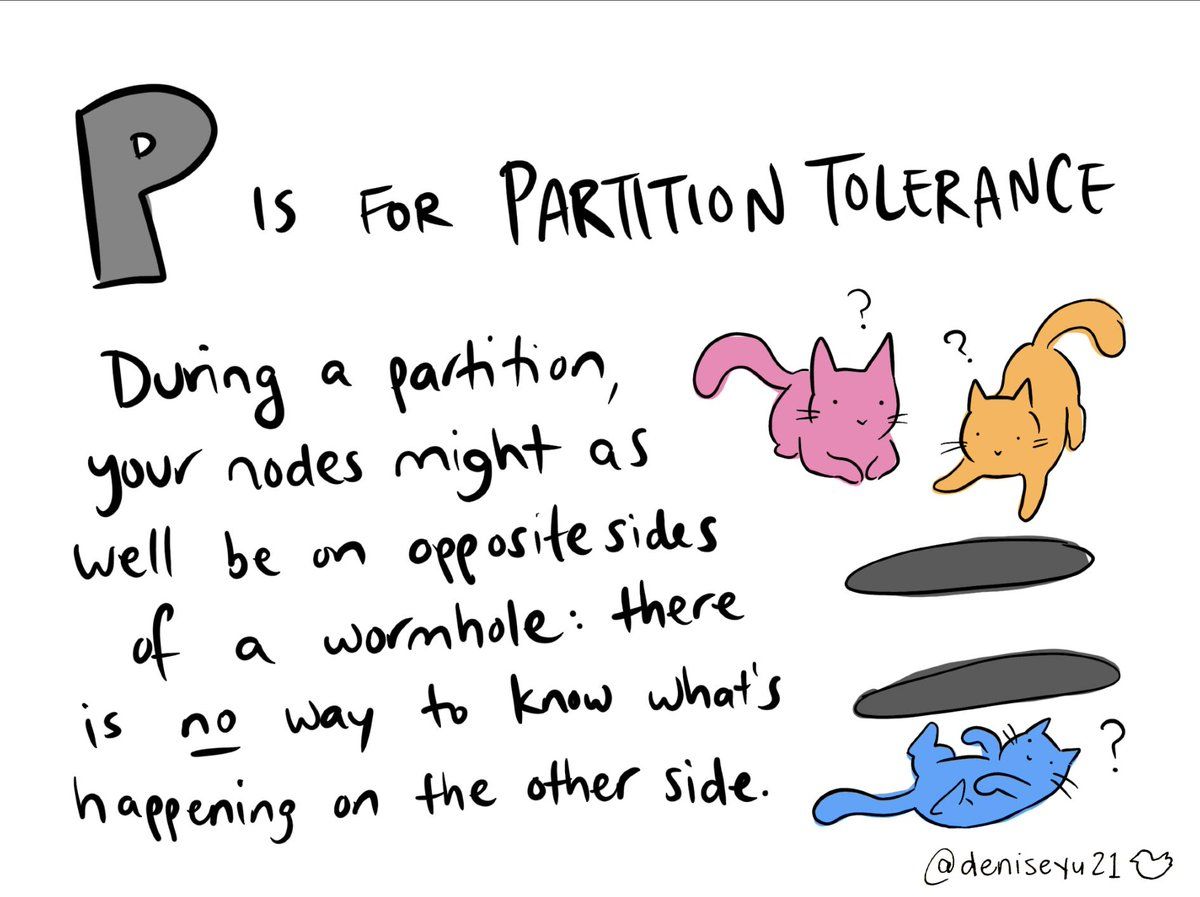 P IS FOR PARTITION TOLERANCE
During a partition,
your nodes might as
well be on opposite sides
of a wormhole: there
is no way to know what's
happening on the other side.
?
?
?
@deniseyu21